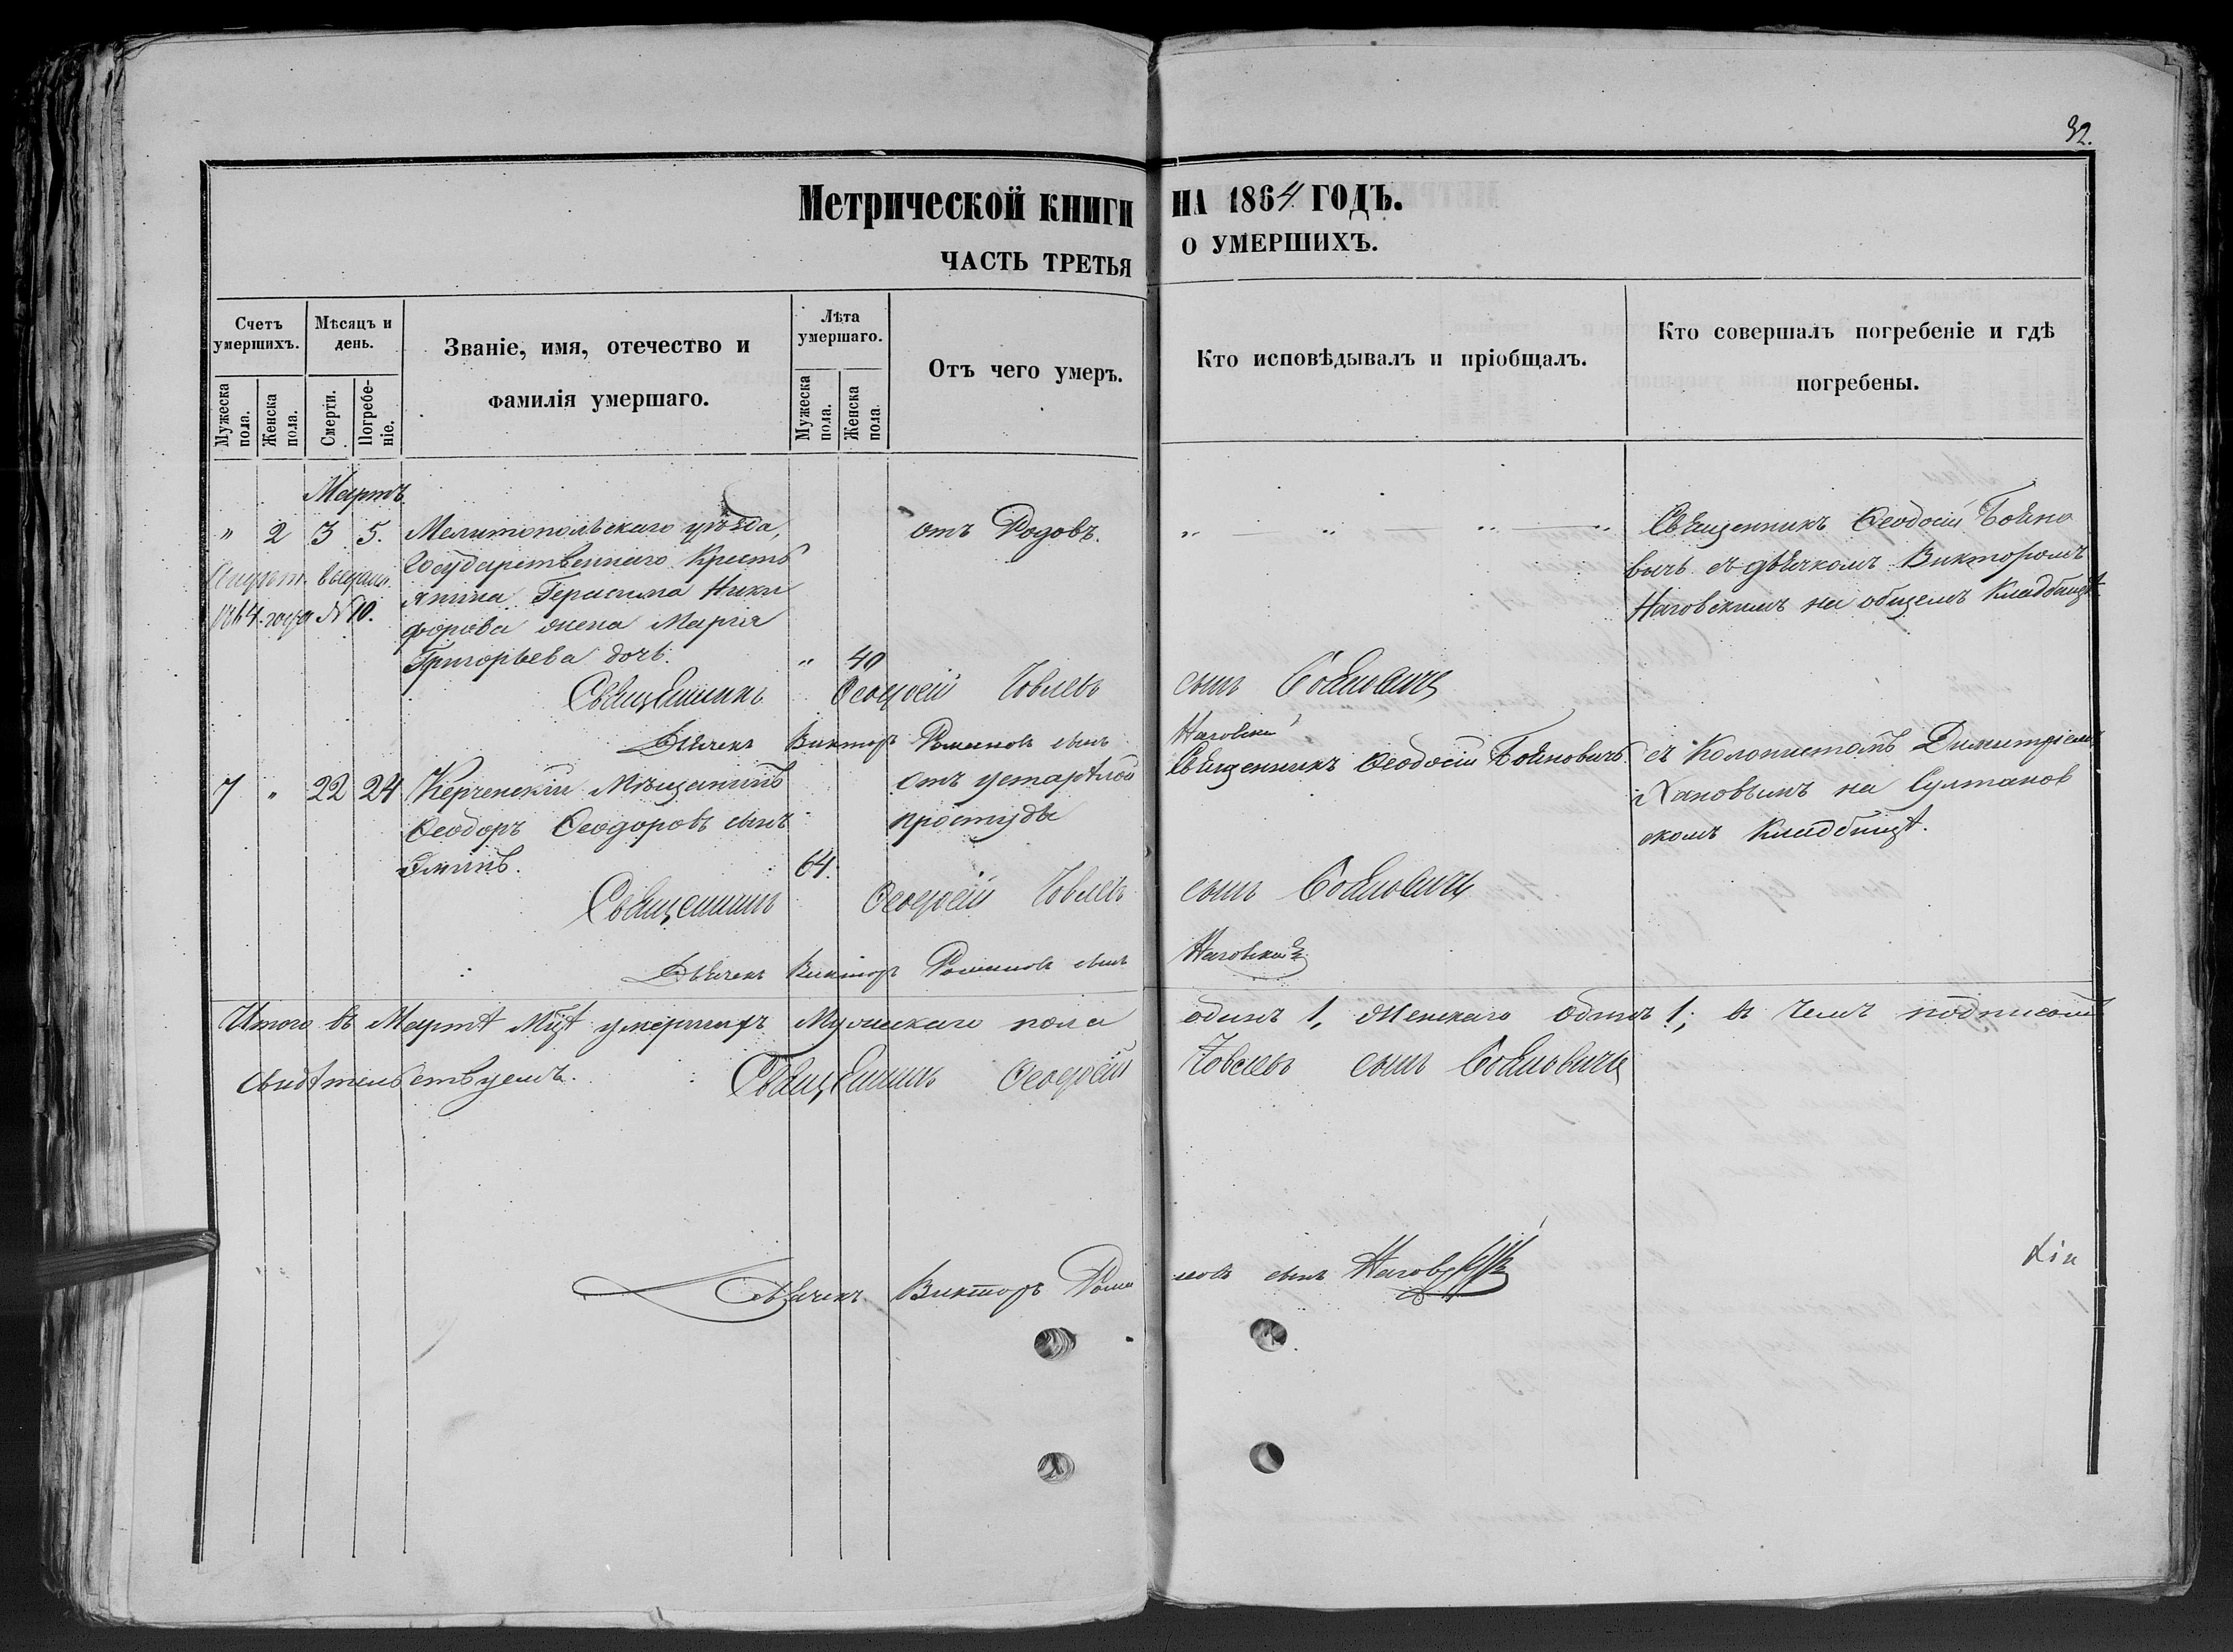 32.
Метрической книги на 1864 годъ.
часть третья о умершихъ.
Счетъ умершихъ.
Мужеска пола.
Женска пола.
Мѣсяцъ и день.
Смерти.
Погребеніе.
Званіе, имя, отечество и
фамилія умершаго.
Лѣта умершаго.
Мужеска пола.
Женска пола.
Отъ чего умеръ.
Кто исповѣдывалъ и пріобщалъ.
Кто совершалъ погребеніе и гдѣ
погребены.
Мартъ
" 2 3 5. Мелитопольскаго уѣзда,
Государственнаго Кресть
янина Герасима Ники
форова жена Марія
Григорьева дочь. " 40
1864. года №10.
отъ Родовъ.
Священникъ Ѳеодосій Бойно
вичъ съ дьячкомъ Викторомъ
Наговскимъ на общемъ Кладбищѣ
Священникъ Ѳеодосій Іовлевъ сынъ Бойновичъ
Дьячекъ Викторъ Романовъ сынъ Наговскій
7 " 22 24 Керченскій Мѣщанинъ
Ѳеодоръ Ѳеодоровъ сынъ
64.
отъ устарѣлой
простуды
Священникъ Ѳеодосій Бойновичъ.
съ Колонистомъ Димитріемъ
на Султанов
скомъ Кладбищѣ.
Священникъ Ѳеодосій Іовлевъ сынъ Бойновичъ
Дьячекъ Викторъ Романовъ сынъ Наговскій
Итого въ Мартѣ Мцѣ умершихъ Мужескаго пола одинъ 1, Женскаго одинъ 1; въ чемъ подписомъ
свидѣтельствуемъ. Священникъ Ѳеодосій Іовлевъ сынъ Бойновичъ
Дьячекъ Викторъ Романовъ сынъ Наговскій